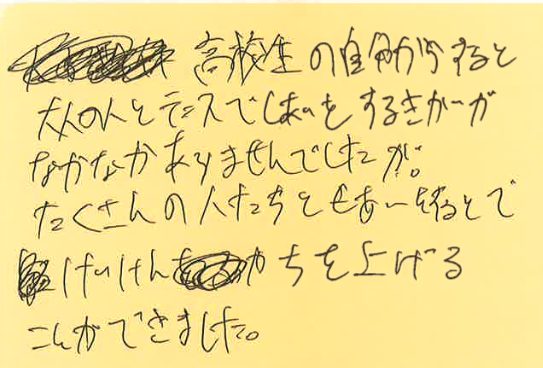 高校生の自分からすると
大人の人とテニスでしあいをするきかいが
なかなかありませんでしたが。
たくさんの人たちとしあいをすることで
けいけんかちを上げる
ことができました。